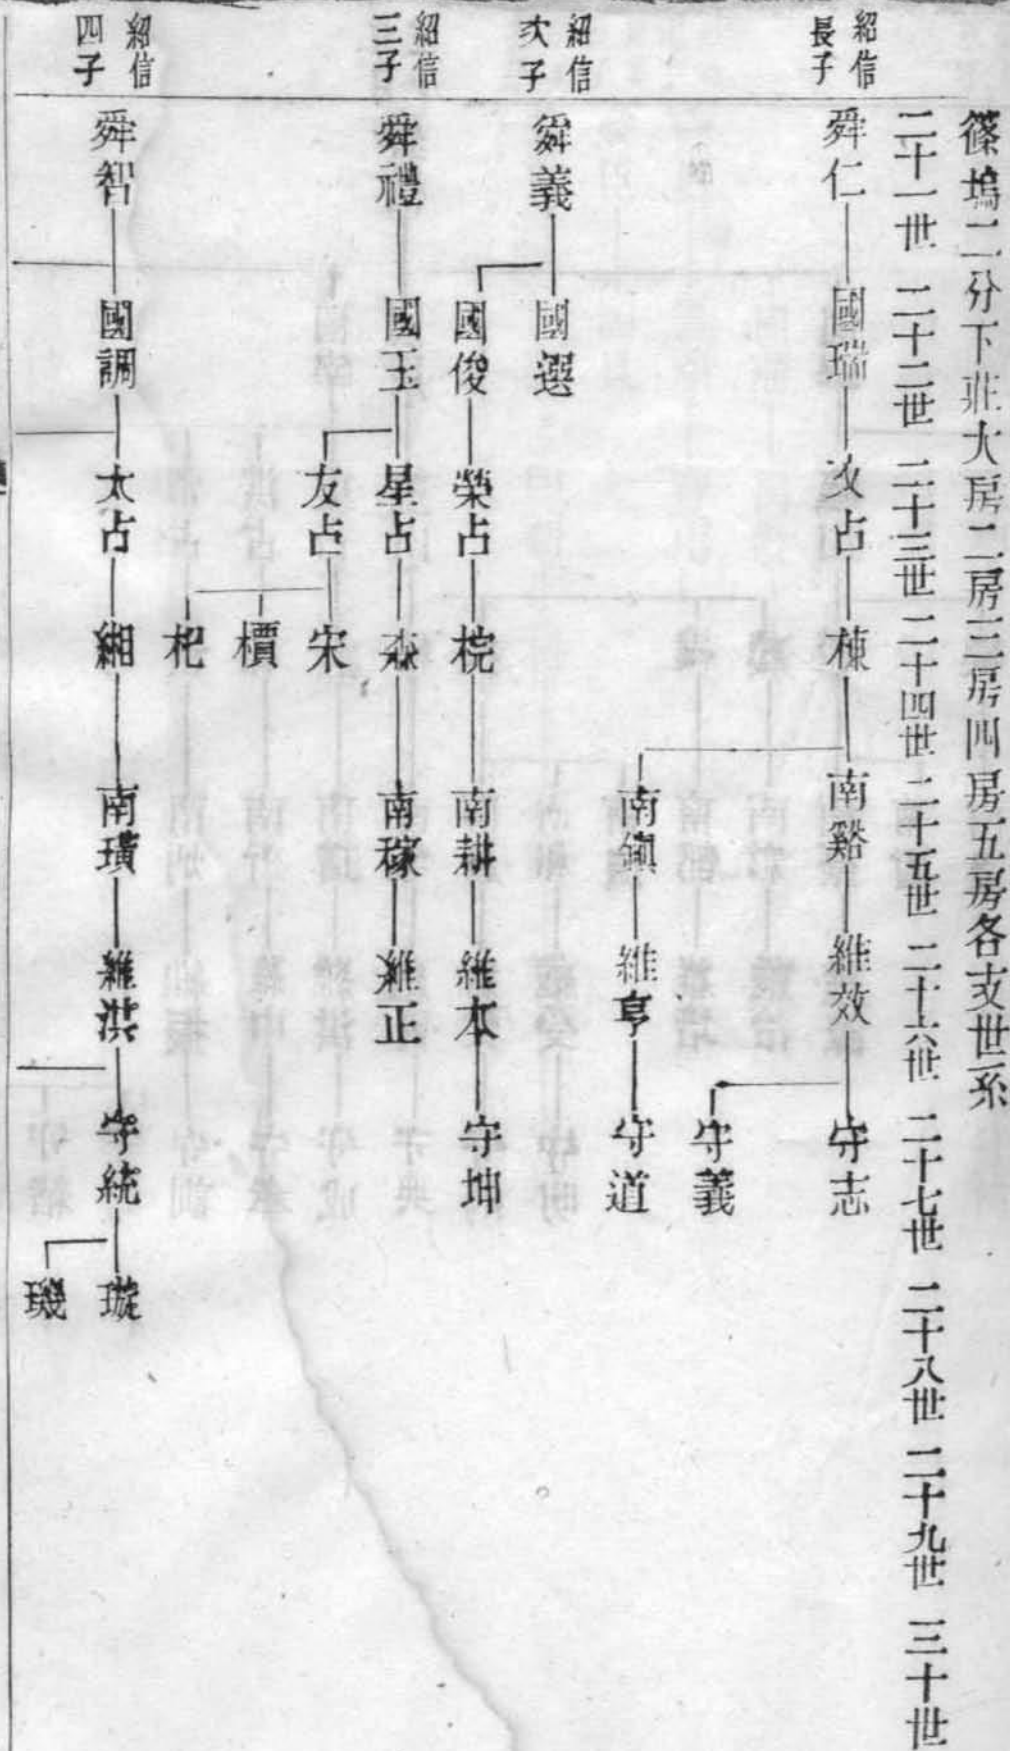 篠塢二分下莊大房二房三房四房五房各支世系
二十一世 二十二世 二十三世 二十四世 二十五世 二十六世 二十七世 二十八世 二十九世 三十世
紹信
長子
舜仁 國瑞 攻占 棟 南谿 維效 守志
守義
南鎮 維亨 守道
紹信
次子
舜義 國選
國俊 榮占 梡 南耕 維本 守坤
紹信
三子
舜禮 國玉 星占 森 南稼 維正
友占 宋
檟
杞
紹信
四子
舜智 國調 太占 緗 南璜 維洪 守統 璇
璣